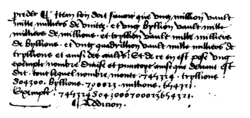 prede Item lon doit savoir que ung million vault
mille milliers de unitez et ung byllion vault mille
milliers de millions et tryllion vault mille milliers
de byllions et ung quadrillion vault mille milliers de
tryllions et ainsi des aultres Et de ce en est pose ung
exemple nombre divise et punctoye ainsi que devant est
dit tout lequel nombre monte 745324 tryllions
804300 byllions 700023 millions 654321
Exemple 745324804300700023654321
Addicion